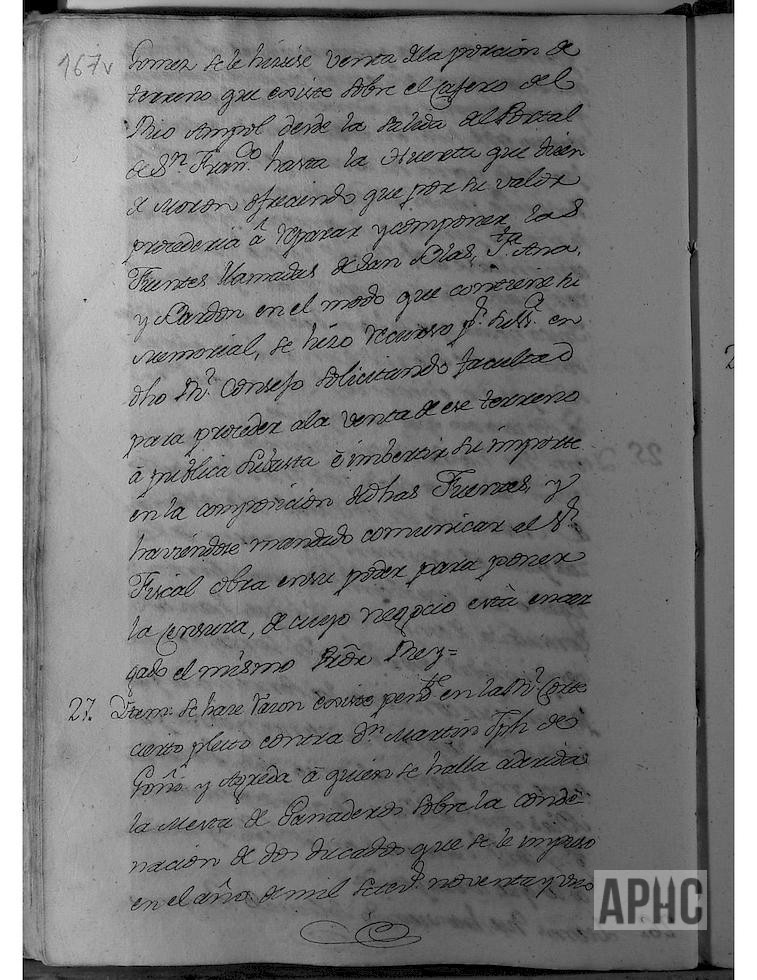 167v
Gomez se le hiciese venta dela porcion de
terreno que existe sobre el Casero del
Rio Ampol desde la salida del Portal
de Sn. Franco. hasta la Huerta que dicen
de Moron ofreciendo que por su valor
procederia â reparar y componer las
Fuentes llamadas de San Blas, Sta. Ana,
y Bardon en el modo que contiene su
Memorial, se hizo recurso pr. su Md. en
dho Rl. Consejo solicitando facultad
para proceder ala venta de ese terreno
â publica subasta ê imbertir su importe
en la composicion de dhas Fuentes, y
haviendose mandado comunicar al Sr.
Fiscal obra en su poder para poner
la Censura, de cuyo negocio està encar
gado el mismo Rey=
27. Ytem: se hace razon existe pendte. en la Rl. Corte
cierto pleito contra Dn. Martin Jph de
y Agreda â quien se halla aderida
la Mesta de Ganaderos sobre la conde
nacion de dos ducados que se le impuso
en el año de mil setecs. noventa y uno
APHC